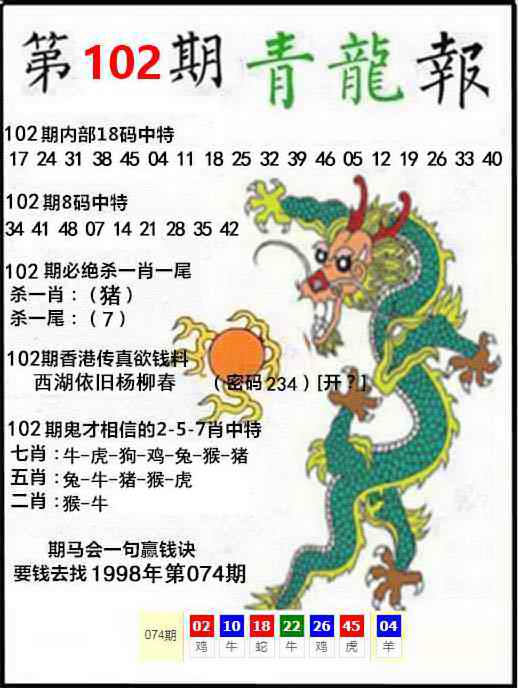 第102期青龍報
102期内部18码中特
17 24 31 38 45 04 11 18 25 32 39 46 05 12 19 26 33 40
102期8码中特
34 41 48 07 14 21 28 35 42
102 期必绝杀一肖一尾
杀一肖：（猪）
杀一尾：（7）
102期香港传真欲钱料
西湖依旧杨柳春 （密码234）[开？]
102期鬼才相信的2-5-7肖中特
七肖：牛-虎-狗-鸡-兔-猴-猪
五肖：兔-牛-猪-猴-虎
二肖：猴-牛
期马会一句赢钱诀
要钱去找1998年第074期
074期 02 10 18 22 26 45 04
鸡 牛 蛇 牛 鸡 虎 羊